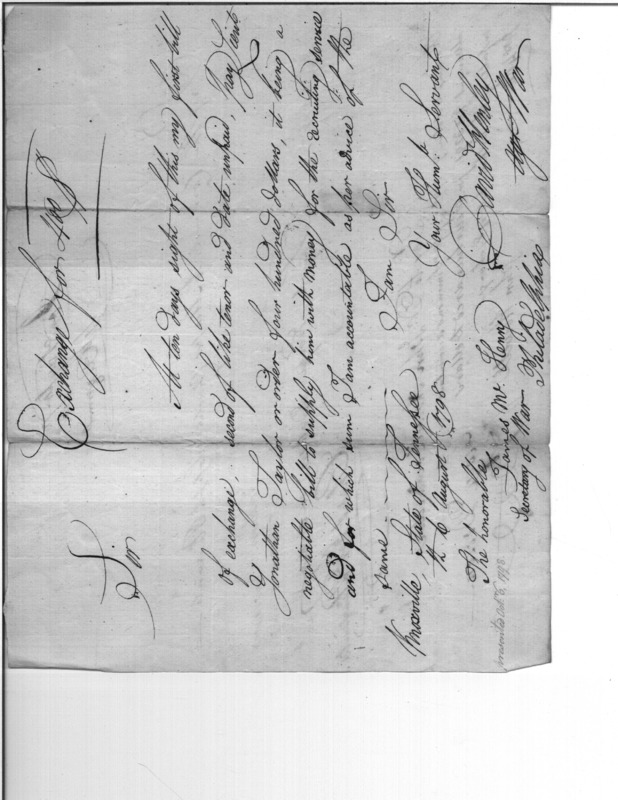 Exchange for 400 $
Sir
At ten days sight of this my first bill
of exchange, second of like tenor and date unpaid, Pay Lieut
Jonathan Taylor or order four hundred dollars, it being a
negotiable bill to supply him with money for the recruiting service
and for which sum I am accountable as per advice of the
same
I am Sir
Knoxville, State of Tennessee
th 6 August 1798
Your Humle Servant
David Henley
Agt War
The honorable
James Mc Henry
Secretary of War
Philadelphia
presented Oct 6, 1798